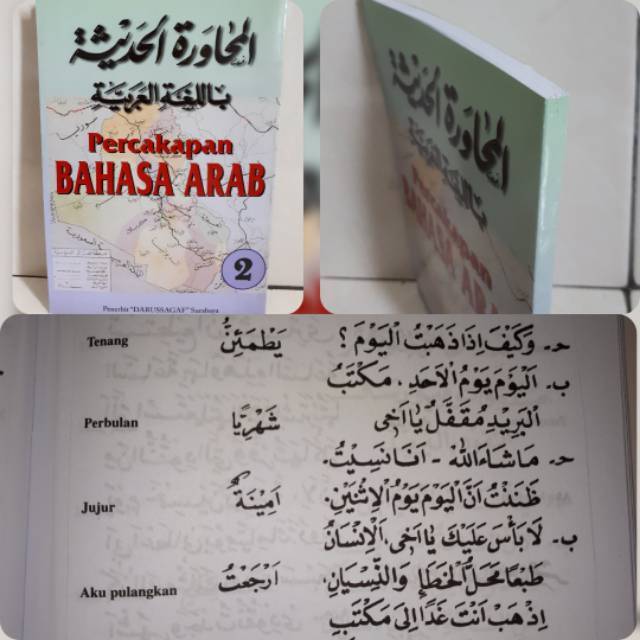 المحاورة الحديثة
باللغة العربية
Percakapan
BAHASA ARAB
2
Penerbit "DARUSSAGAF" Surabaya
المحاورة الحديثة
باللغة العربية
Percakapan
حـ - وَكَيْفَ اِذَا ذَهَبْتُ الْيَوْمَ ؟ يَطْمَئِنُّ Tenang
ب - اَلْيَوْمَ يَوْمُ الْاَحَدِ . مَكْتَبُ
الْبَرِيْدِ مُقَفَّلٌ يَا اَخِى شَهْرِيًّا Perbulan
حـ - مَا شَاءَ اللهُ - اَنَا نَسِيْتُ .
ظَنَنْتُ اَنَّ الْيَوْمَ يَوْمُ الْاِثْنَيْنِ . اَمِيْنَةٌ Jujur
ب - لَا بَأْسَ عَلَيْكَ يَا اَخِى ، اَلْاِنْسَانُ
طَبْعًا مَحَلُّ الْخَطَإِ وَالنِّسْيَانِ اَرْجَعْتُ Aku pulangkan
اِذْهَبْ اَنْتَ غَدًا اِلَى مَكْتَبِ